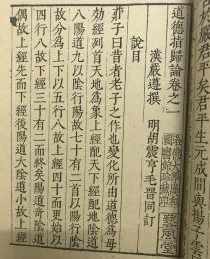 元成間與揚子雲
道德指歸論卷之一
漢嚴遵撰　明胡震亨毛晉同訂
說目
莊子曰昔者老子之作也變化所由道德為母
効經列首天地為象上經配天下經配地陰道
八陽道九以陰行陽故七十有二首以陽行陰
故分為上下以五行八故上經四十而更始以
四行八故下經三十有二而終矣陽道奇陰道
偶故上經先而下經後陽道大陰道小故上經